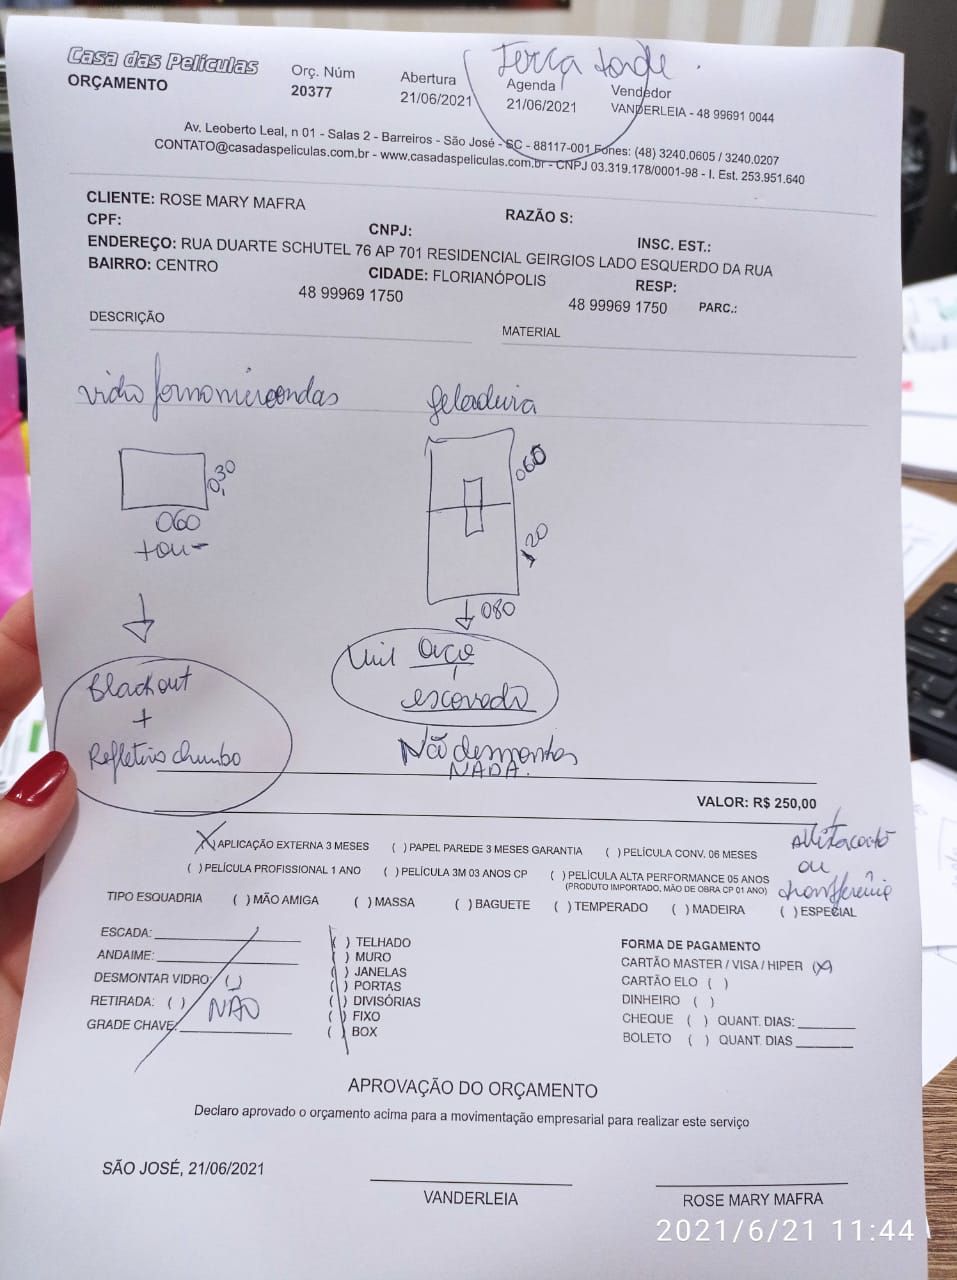 Casa das Películas
ORÇAMENTO
Orç. Núm
20377
Abertura
21/06/2021
Terça tarde.
Agenda
21/06/2021
Vendedor
VANDERLEIA - 48 99691 0044
Av. Leoberto Leal, n 01 - Salas 2 - Barreiros - São José - SC - 88117-001 Fones: (48) 3240.0605 / 3240.0207
CONTATO@casadaspeliculas.com.br - www.casadaspeliculas.com.br - CNPJ 03.319.178/0001-98 - I. Est. 253.951.640
CLIENTE: ROSE MARY MAFRA RAZÃO S:
CPF: CNPJ: INSC. EST.:
ENDEREÇO: RUA DUARTE SCHUTEL 76 AP 701 RESIDENCIAL GEIRGIOS LADO ESQUERDO DA RUA
BAIRRO: CENTRO CIDADE: FLORIANÓPOLIS RESP:
48 99969 1750 48 99969 1750 PARC.:
DESCRIÇÃO MATERIAL
vidro forno microondas geladeira
0,30
060
+ou-
060
1,20
080
Blackout
+
Refletivo chumbo
Vinil aço
escovado
Não desmontar
NADA.
VALOR: R$ 250,00
X APLICAÇÃO EXTERNA 3 MESES ( ) PAPEL PAREDE 3 MESES GARANTIA ( ) PELÍCULA CONV. 06 MESES
( ) PELÍCULA PROFISSIONAL 1 ANO ( ) PELÍCULA 3M 03 ANOS CP ( ) PELÍCULA ALTA PERFORMANCE 05 ANOS
(PRODUTO IMPORTADO, MÃO DE OBRA CP 01 ANO)
ou
transferência
TIPO ESQUADRIA ( ) MÃO AMIGA ( ) MASSA ( ) BAGUETE ( ) TEMPERADO ( ) MADEIRA ( ) ESPECIAL
ESCADA:
ANDAIME:
DESMONTAR VIDRO: ( )
RETIRADA: ( ) NÃO
GRADE CHAVE:
( ) TELHADO
( ) MURO
( ) JANELAS
( ) PORTAS
( ) DIVISÓRIAS
( ) FIXO
( ) BOX
FORMA DE PAGAMENTO
CARTÃO MASTER / VISA / HIPER (X)
CARTÃO ELO ( )
DINHEIRO ( )
CHEQUE ( ) QUANT. DIAS:
BOLETO ( ) QUANT. DIAS
APROVAÇÃO DO ORÇAMENTO
Declaro aprovado o orçamento acima para a movimentação empresarial para realizar este serviço
SÃO JOSÉ, 21/06/2021
VANDERLEIA
ROSE MARY MAFRA
2021/6/21 11:44